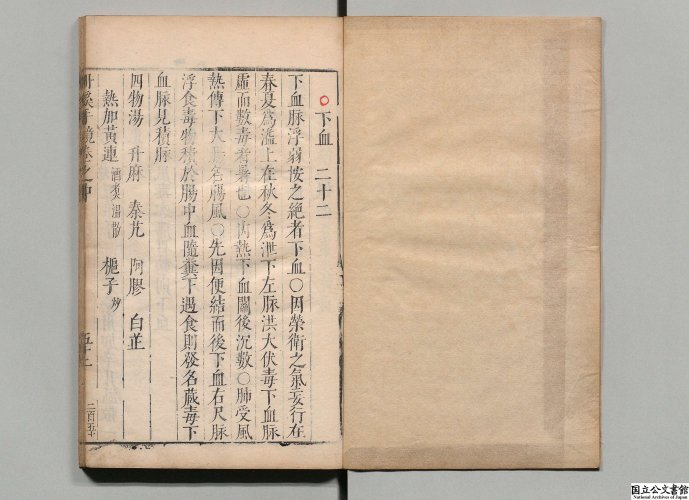 ○下血 二十二
下血脉浮弱按之絶者下血○因榮衛之氣妄行在
春夏爲溢上在秋冬爲泄下左脉洪大伏毒下血脉
虛而數毒者暑也○因熱下血關後沉數○肺受風
熱傳下大腸名腸風○先因便結而後下血右尺脉
浮食毒物積於腸中血隨糞下遇食則發名蔵毒下
血脉見積脉
四物湯 升麻 秦艽 阿膠 白芷
熱加黄連酒煑温散 梔子炒
卷之中
五十二
国立公文書館
National Archives of Japan